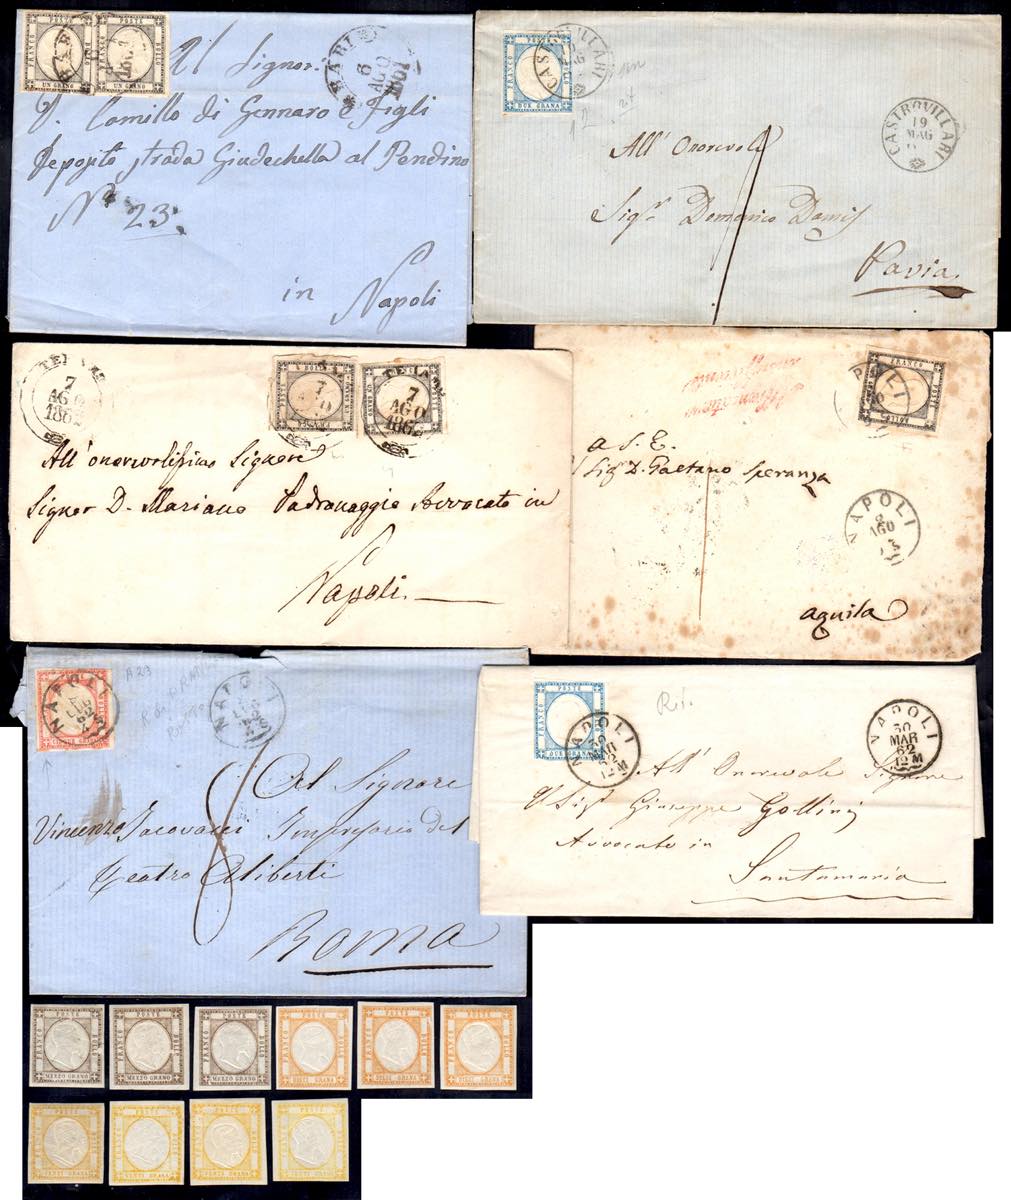 FRANCO POSTE BOLLO
UN GRANO
FRANCO POSTE BOLLO
UN GRANO
BARI
6
AGO
1861
Al Signor
D. Camillo di Gennaro e Figli
Deposito strada Giudechella al Pendino
N° 23
in Napoli
FRANCO POSTE BOLLO
DUE GRANA
CASTROVILLARI
CASTROVILLARI
19
MAG
All' Onorevole
Sigr. Domenico Damis
Pavia
7
AGO
1862
7
AGO
1862
All' onorevolissimo Signore
Signor D. Mariano Avvocato in
Napoli
FRANCO POSTE BOLLO
NAPOLI
2
AGO
a S. E.
Sig D. Gaetano Speranza
aquila
A23
NAPOLI
62
NAPOLI
Al Signore
Vincenzo Jacovacci Impresario del
Teatro Aliberti
Roma
FRANCO POSTE BOLLO
DUE GRANA
NAPOLI
30
MAR
62
12M
NAPOLI
30
MAR
62
12M
Rif.
All' Onorevole Signore
Sigr Giuseppe Gollini
Avvocato in
Santamaria
FRANCO POSTE BOLLO
MEZZO GRANO
FRANCO POSTE BOLLO
MEZZO GRANO
FRANCO POSTE BOLLO
MEZZO GRANO
FRANCO POSTE BOLLO
DIECI GRANA
FRANCO POSTE BOLLO
DIECI GRANA
FRANCO POSTE BOLLO
DIECI GRANA
FRANCO POSTE BOLLO
VENTI GRANA
FRANCO POSTE BOLLO
VENTI GRANA
FRANCO POSTE BOLLO
VENTI GRANA
FRANCO POSTE BOLLO
VENTI GRANA